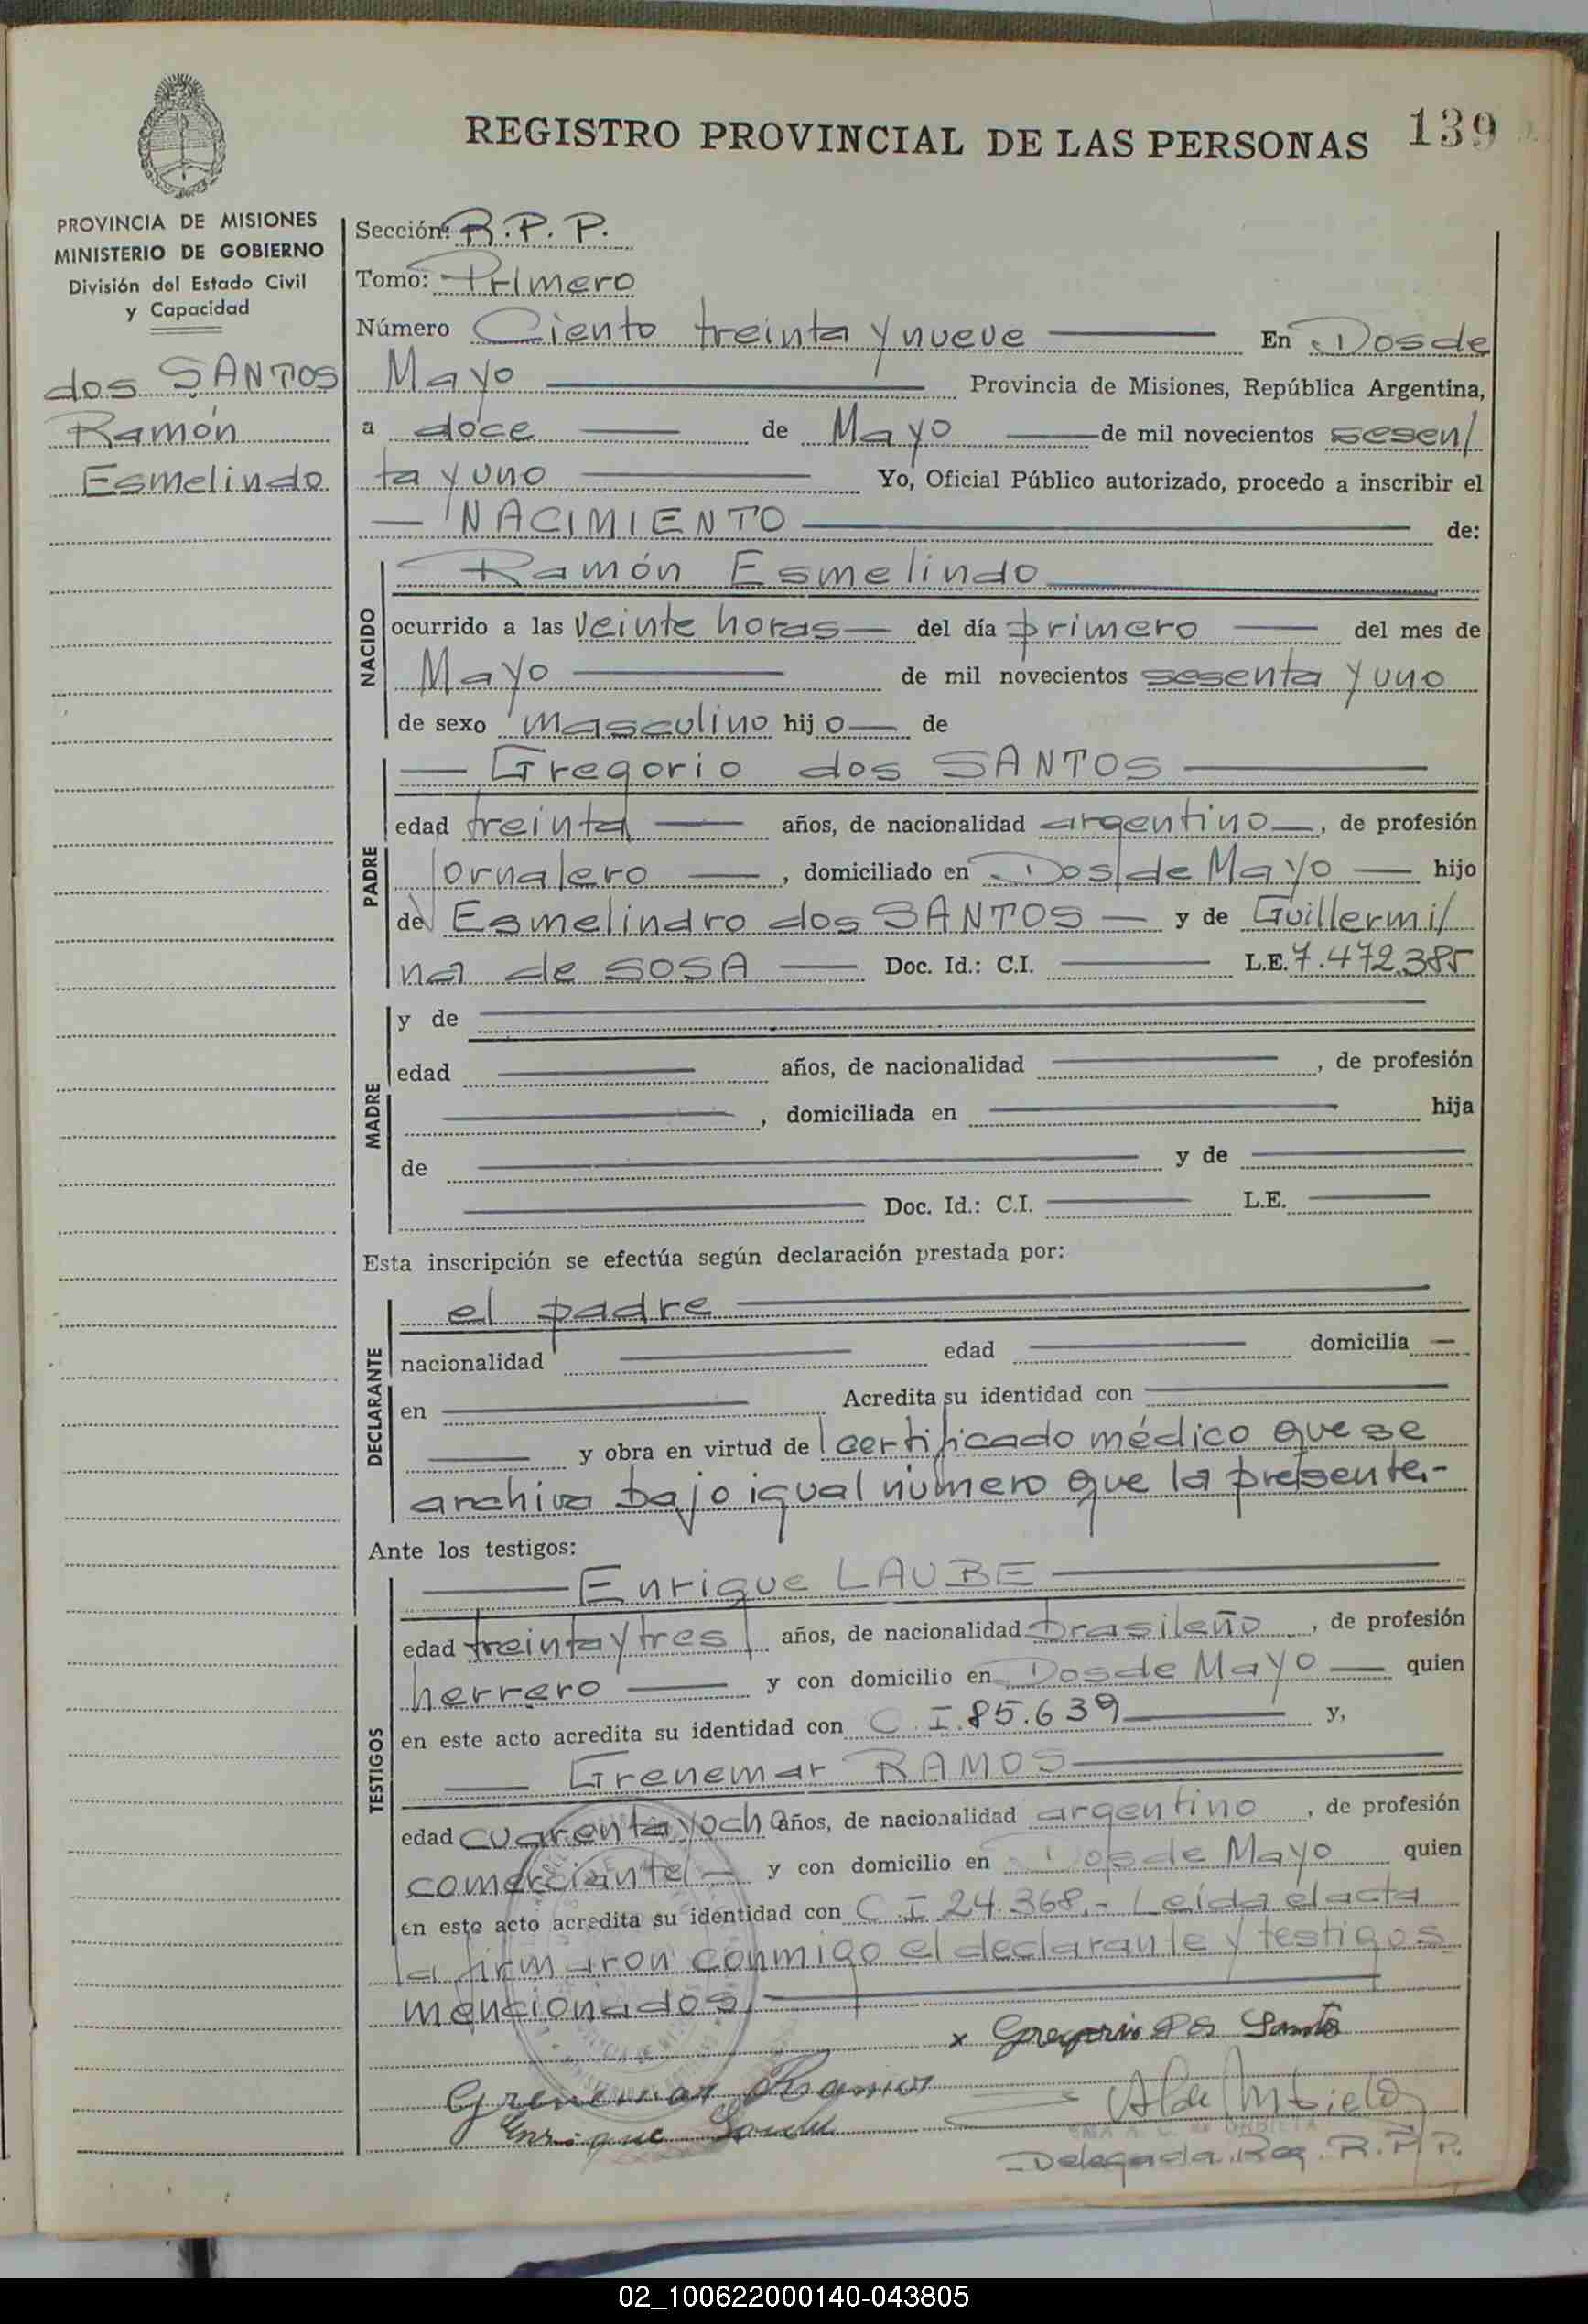 REGISTRO PROVINCIAL DE LAS PERSONAS 139
PROVINCIA DE MISIONES
MINISTERIO DE GOBIERNO
División del Estado Civil
y Capacidad
dos SANTOS
Ramón
Esmelindo
Sección: R.P.P.
Tomo: Primero
Número Ciento treinta y nueve En Dos de
Mayo Provincia de Misiones, República Argentina,
a doce de Mayo de mil novecientos sesen/
ta y uno Yo, Oficial Público autorizado, procedo a inscribir el
NACIMIENTO de:
NACIDO
Ramón Esmelindo
ocurrido a las veinte horas del día primero del mes de
Mayo de mil novecientos sesenta y uno
de sexo masculino hijo de
PADRE
Gregorio dos SANTOS
edad treinta años, de nacionalidad argentino, de profesión
jornalero, domiciliado en Dos de Mayo hijo
de Esmelindro dos SANTOS y de Guillermi/
na de SOSA Doc. Id.: C.I. L.E. 7.472.385
MADRE
y de
edad años, de nacionalidad , de profesión
, domiciliada en hija
de y de
Doc. Id.: C.I. L.E.
Esta inscripción se efectúa según declaración prestada por:
DECLARANTE
el padre
nacionalidad edad domicilia
en Acredita su identidad con
y obra en virtud de certificado médico que se
archiva bajo igual número que la presente.-
Ante los testigos:
TESTIGOS
Enrique LAUBE
edad treinta y tres años, de nacionalidad brasileño, de profesión
herrero y con domicilio en Dos de Mayo quien
en este acto acredita su identidad con C.I. 85.639 y,
Grenemar RAMOS
edad cuarenta y ocho años, de nacionalidad argentino, de profesión
comerciante y con domicilio en Dos de Mayo quien
en este acto acredita su identidad con C.I 24.368.- Leída el acta
la firmaron conmigo el declarante y testigos
mencionados.
x Gregorio Dos Santos
Grenemar Ramos
Enrique Laube
Delegada Reg. R.P.P.
02_100622000140-043805